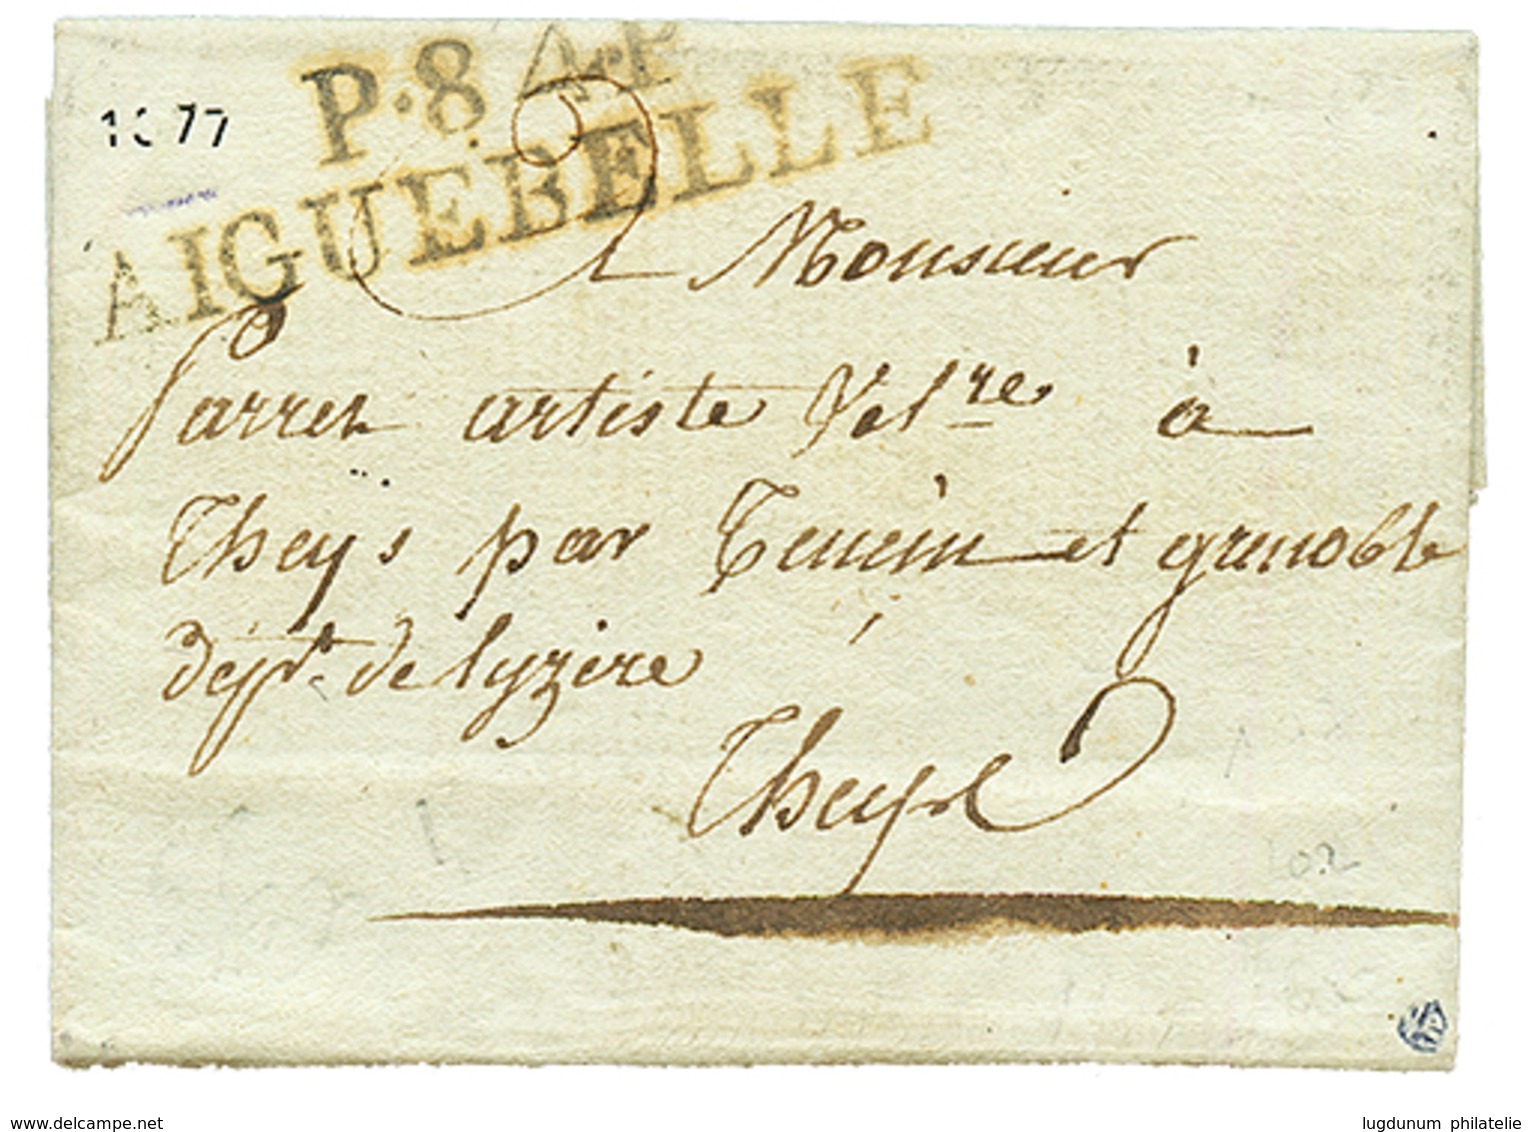 P.84.P
AIGUEBELLE
Monsieur
Parret artiste Vet.re à
Theÿs par Tencin et grenoble
dépt. de lyzère
Theys
www.delcampe.net
lugdunum philatelie